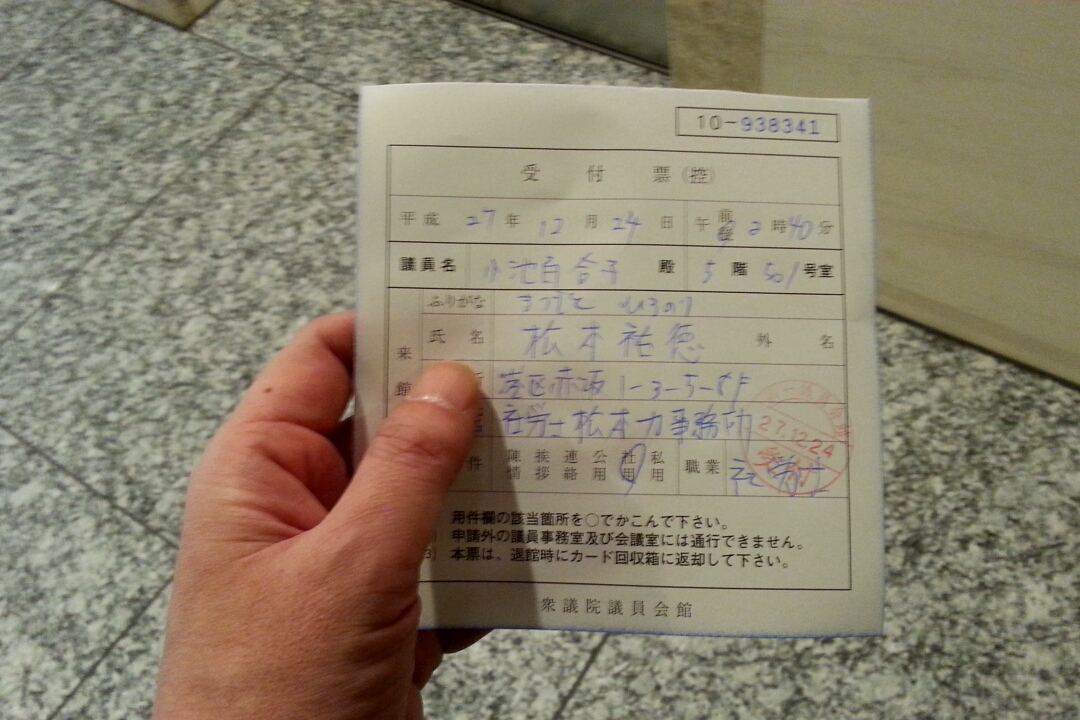 10-938341
受付票(控)
平成 27 年 12 月 24 日 午前後 2 時 40 分
議員名 小池百合子 殿 5 階 501 号室
ふりがな まつもと ひろのり
来館 氏名 松本祐徳 外 名
所 港区赤坂1-3-5-8F
社労士松本力事務所
件 陳情 挨拶 連絡 公用 社用 私用 職業 社労士
27.12.24
用件欄の該当箇所を○でかこんで下さい。
申請外の議員事務室及び会議室には通行できません。
3) 本票は、退館時にカード回収箱に返却して下さい。
衆議院議員会館